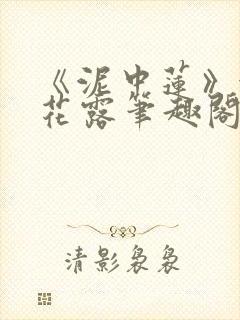 《泥中蓮》
花露筆趣閣
清影裊裊